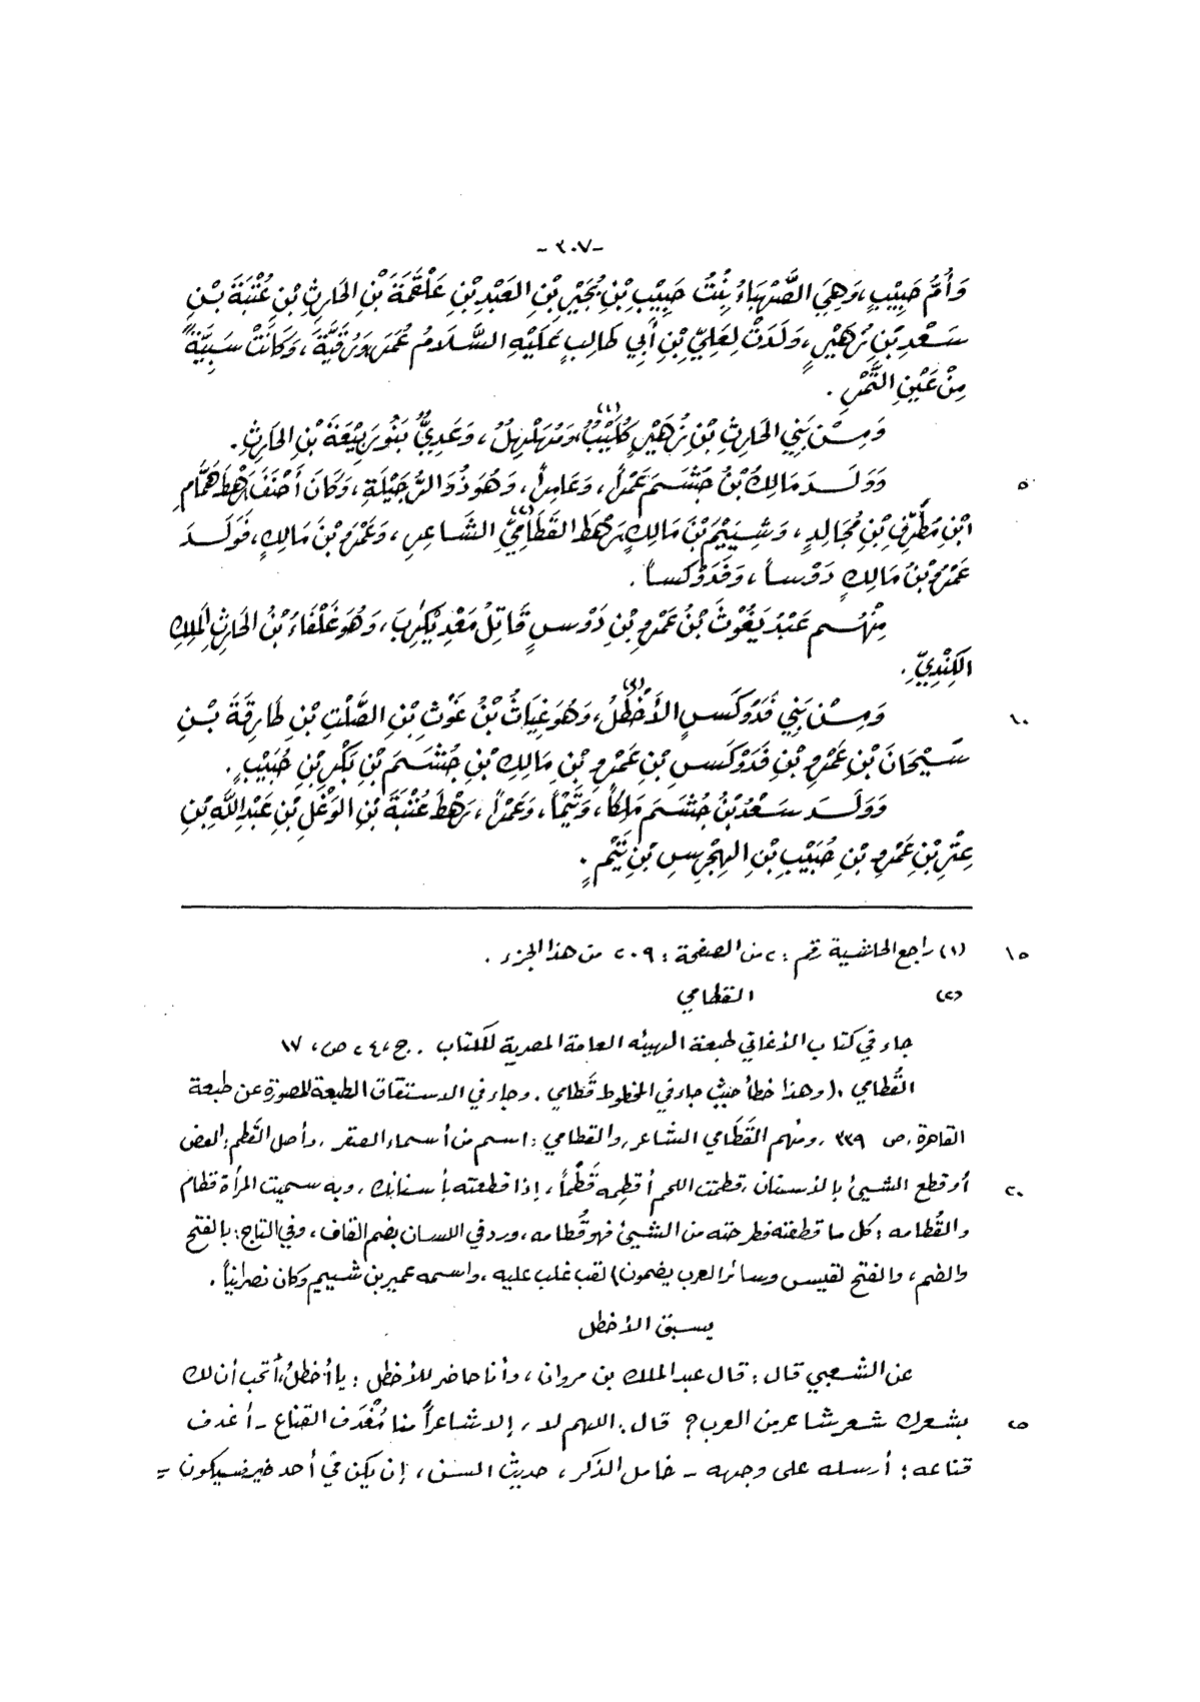 -٣٠٧-
وَأُمُّ حَبِيْبٍ، وَهِيَ الصَّهْبَاءُ بِنْتُ حَبِيْبِ بْنِ بُجَيْرِ بْنِ العَبْدِ بْنِ عَلْقَمَةَ بْنِ الحَارِثِ بْنِ عُتْبَةَ بْنِ
سَعْدِ بْنِ زُهَيْرٍ، وَلَدَتْ لِعَلِيِّ بْنِ أَبِي طَالِبٍ عَلَيْهِ السَّلَامُ عُمَرَ وَرُقَيَّةَ، وَكَانَتْ سَبِيَّةً
مِنْ عَيْنِ التَّمْرِ.
وَمِنْ بَنِي الحَارِثِ بْنِ زُهَيْرٍ كُلَيْبٌ(١)، وَمُهَلْهِلٌ، وَعَدِيٌّ بَنُو رَبِيْعَةَ بْنِ الحَارِثِ.
٥ وَوَلَدَ مَالِكُ بْنُ جُشَمَ عَمْراً، وَعَامِراً، وَهُوَ ذُو الرُّجَيْلَةِ، وَكَانَ أَحْنَفَ رَهْطَ هَمَّامِ
ابْنِ مُطَرِّفِ بْنِ مُجَالِدٍ، وَشِيَيْمَ بْنَ مَالِكٍ رَهْطَ القَطَامِيِّ(٢) الشَّاعِرِ، وَعَمْرَو بْنَ مَالِكٍ، فَوَلَدَ
عَمْرُو بْنُ مَالِكٍ دَوْساً، وَفَدَوْكَساً.
مِنْهُم عَبْدُ يَغُوْثَ بْنُ عَمْرِو بْنِ دَوْسٍ قَاتِلُ مَعْدِيْكَرِبَ، وَهُوَ غَلْفَاءُ بْنُ الحَارِثِ المَلِكِ
الكِنْدِيِّ.
١٠ وَمِنْ بَنِي فَدَوْكَسٍ الأَخْطَلُ(٢)، وَهُوَ غِيَاثُ بْنُ غَوْثِ بْنِ الصَّلْتِ بْنِ طَارِقَةَ بْنِ
سَيْحَانَ بْنِ عَمْرِو بْنِ فَدَوْكَسِ بْنِ عَمْرِو بْنِ مَالِكِ بْنِ جُشَمَ بْنِ بَكْرِ بْنِ حُبَيْبٍ.
وَوَلَدَ سَعْدُ بْنُ جُشَمَ مَالِكاً، وَتَيْماً، وَعَمْراً، رَهْطَ عُتْبَةَ بْنِ الوَغْلِ بْنِ عَبْدِ اللهِ بْنِ
عِتْرِ بْنِ عَمْرِو بْنِ حُبَيْبِ بْنِ الهِجْرِسِ بْنِ تَيْمٍ.
١٥ (١) راجع الحاشية رقم: ٢ من الصفحة: ٢٠٩ من هذا الجزء.
(٢) القطامي
جاء في كتاب الأغاني طبعة الهيئه العامة المصرية للكتاب. ج، ٢٤ ص، ١٧
القُطامي.(وهذا خطأ حيث جاء في المخطوط قَطامي. وجاء في الاشتقاق الطبعة المصورة عن طبعة
القاهرة، ص ٣٣٩، ومنهم القَطَامي الشاعر، والقطامي: اسم من أسماء الصقر، وأصل القَطم: العض
٢٠ أو قطع الشيئ بالأسنان، قطمت اللحم أقطِمه قَطْماً، إذا قطعته بأسنانك، وبه سميت المرأة قطام
والقُطامه: كل ما قطعته فطرحته من الشيئ فهو قُطامه، وورد في اللسان بضم القاف، وفي التاج: بالفتح
والضم، والفتح لقيس وسائر العرب يضمون) لقب غلب عليه، واسمه عمير بن شييم وكان نصرانياً.
يسبق الأخطل
عن الشعبي قال: قال عبد الملك بن مروان، وأنا حاضر للأخطل: يا أخطلُ، أتحب أن لك
٢٥ بشعرك شعر شاعر من العرب؟ قال: اللهم لا، إلا شاعراً منا مُغْدَف القناع - أغدف
قناعه: أرسله على وجهه - خامل الذكر، حديث السن، إن يكن في أحد خير فسيكون =